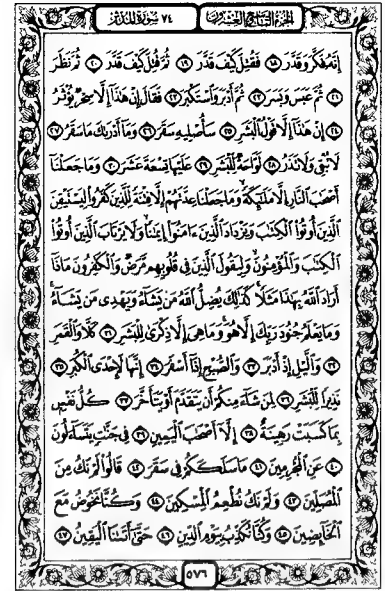 سورة المدثر ٧٤ الجزء التاسع والعشرون
إِنَّهُۥ فَكَّرَ وَقَدَّرَ ١٨ فَقُتِلَ كَيْفَ قَدَّرَ ١٩ ثُمَّ قُتِلَ كَيْفَ قَدَّرَ ٢٠ ثُمَّ نَظَرَ
٢١ ثُمَّ عَبَسَ وَبَسَرَ ٢٢ ثُمَّ أَدْبَرَ وَٱسْتَكْبَرَ ٢٣ فَقَالَ إِنْ هَٰذَآ إِلَّا سِحْرٌ يُؤْثَرُ
٢٤ إِنْ هَٰذَآ إِلَّا قَوْلُ ٱلْبَشَرِ ٢٥ سَأُصْلِيهِ سَقَرَ ٢٦ وَمَآ أَدْرَىٰكَ مَا سَقَرُ ٢٧
لَا تُبْقِى وَلَا تَذَرُ ٢٨ لَوَّاحَةٌ لِّلْبَشَرِ ٢٩ عَلَيْهَا تِسْعَةَ عَشَرَ ٣٠ وَمَا جَعَلْنَآ
أَصْحَٰبَ ٱلنَّارِ إِلَّا مَلَٰٓئِكَةً وَمَا جَعَلْنَا عِدَّتَهُمْ إِلَّا فِتْنَةً لِّلَّذِينَ كَفَرُوا۟ لِيَسْتَيْقِنَ
ٱلَّذِينَ أُوتُوا۟ ٱلْكِتَٰبَ وَيَزْدَادَ ٱلَّذِينَ ءَامَنُوٓا۟ إِيمَٰنًا وَلَا يَرْتَابَ ٱلَّذِينَ أُوتُوا۟
ٱلْكِتَٰبَ وَٱلْمُؤْمِنُونَ وَلِيَقُولَ ٱلَّذِينَ فِى قُلُوبِهِم مَّرَضٌ وَٱلْكَٰفِرُونَ مَاذَآ
أَرَادَ ٱللَّهُ بِهَٰذَا مَثَلًا كَذَٰلِكَ يُضِلُّ ٱللَّهُ مَن يَشَآءُ وَيَهْدِى مَن يَشَآءُ
وَمَا يَعْلَمُ جُنُودَ رَبِّكَ إِلَّا هُوَ وَمَا هِىَ إِلَّا ذِكْرَىٰ لِلْبَشَرِ ٣١ كَلَّا وَٱلْقَمَرِ
٣٢ وَٱلَّيْلِ إِذْ أَدْبَرَ ٣٣ وَٱلصُّبْحِ إِذَآ أَسْفَرَ ٣٤ إِنَّهَا لَإِحْدَى ٱلْكُبَرِ ٣٥
نَذِيرًا لِّلْبَشَرِ ٣٦ لِمَن شَآءَ مِنكُمْ أَن يَتَقَدَّمَ أَوْ يَتَأَخَّرَ ٣٧ كُلُّ نَفْسٍۭ
بِمَا كَسَبَتْ رَهِينَةٌ ٣٨ إِلَّآ أَصْحَٰبَ ٱلْيَمِينِ ٣٩ فِى جَنَّٰتٍ يَتَسَآءَلُونَ
٤٠ عَنِ ٱلْمُجْرِمِينَ ٤١ مَا سَلَكَكُمْ فِى سَقَرَ ٤٢ قَالُوا۟ لَمْ نَكُ مِنَ
ٱلْمُصَلِّينَ ٤٣ وَلَمْ نَكُ نُطْعِمُ ٱلْمِسْكِينَ ٤٤ وَكُنَّا نَخُوضُ مَعَ
ٱلْخَآئِضِينَ ٤٥ وَكُنَّا نُكَذِّبُ بِيَوْمِ ٱلدِّينِ ٤٦ حَتَّىٰٓ أَتَىٰنَا ٱلْيَقِينُ ٤٧
٥٧٦